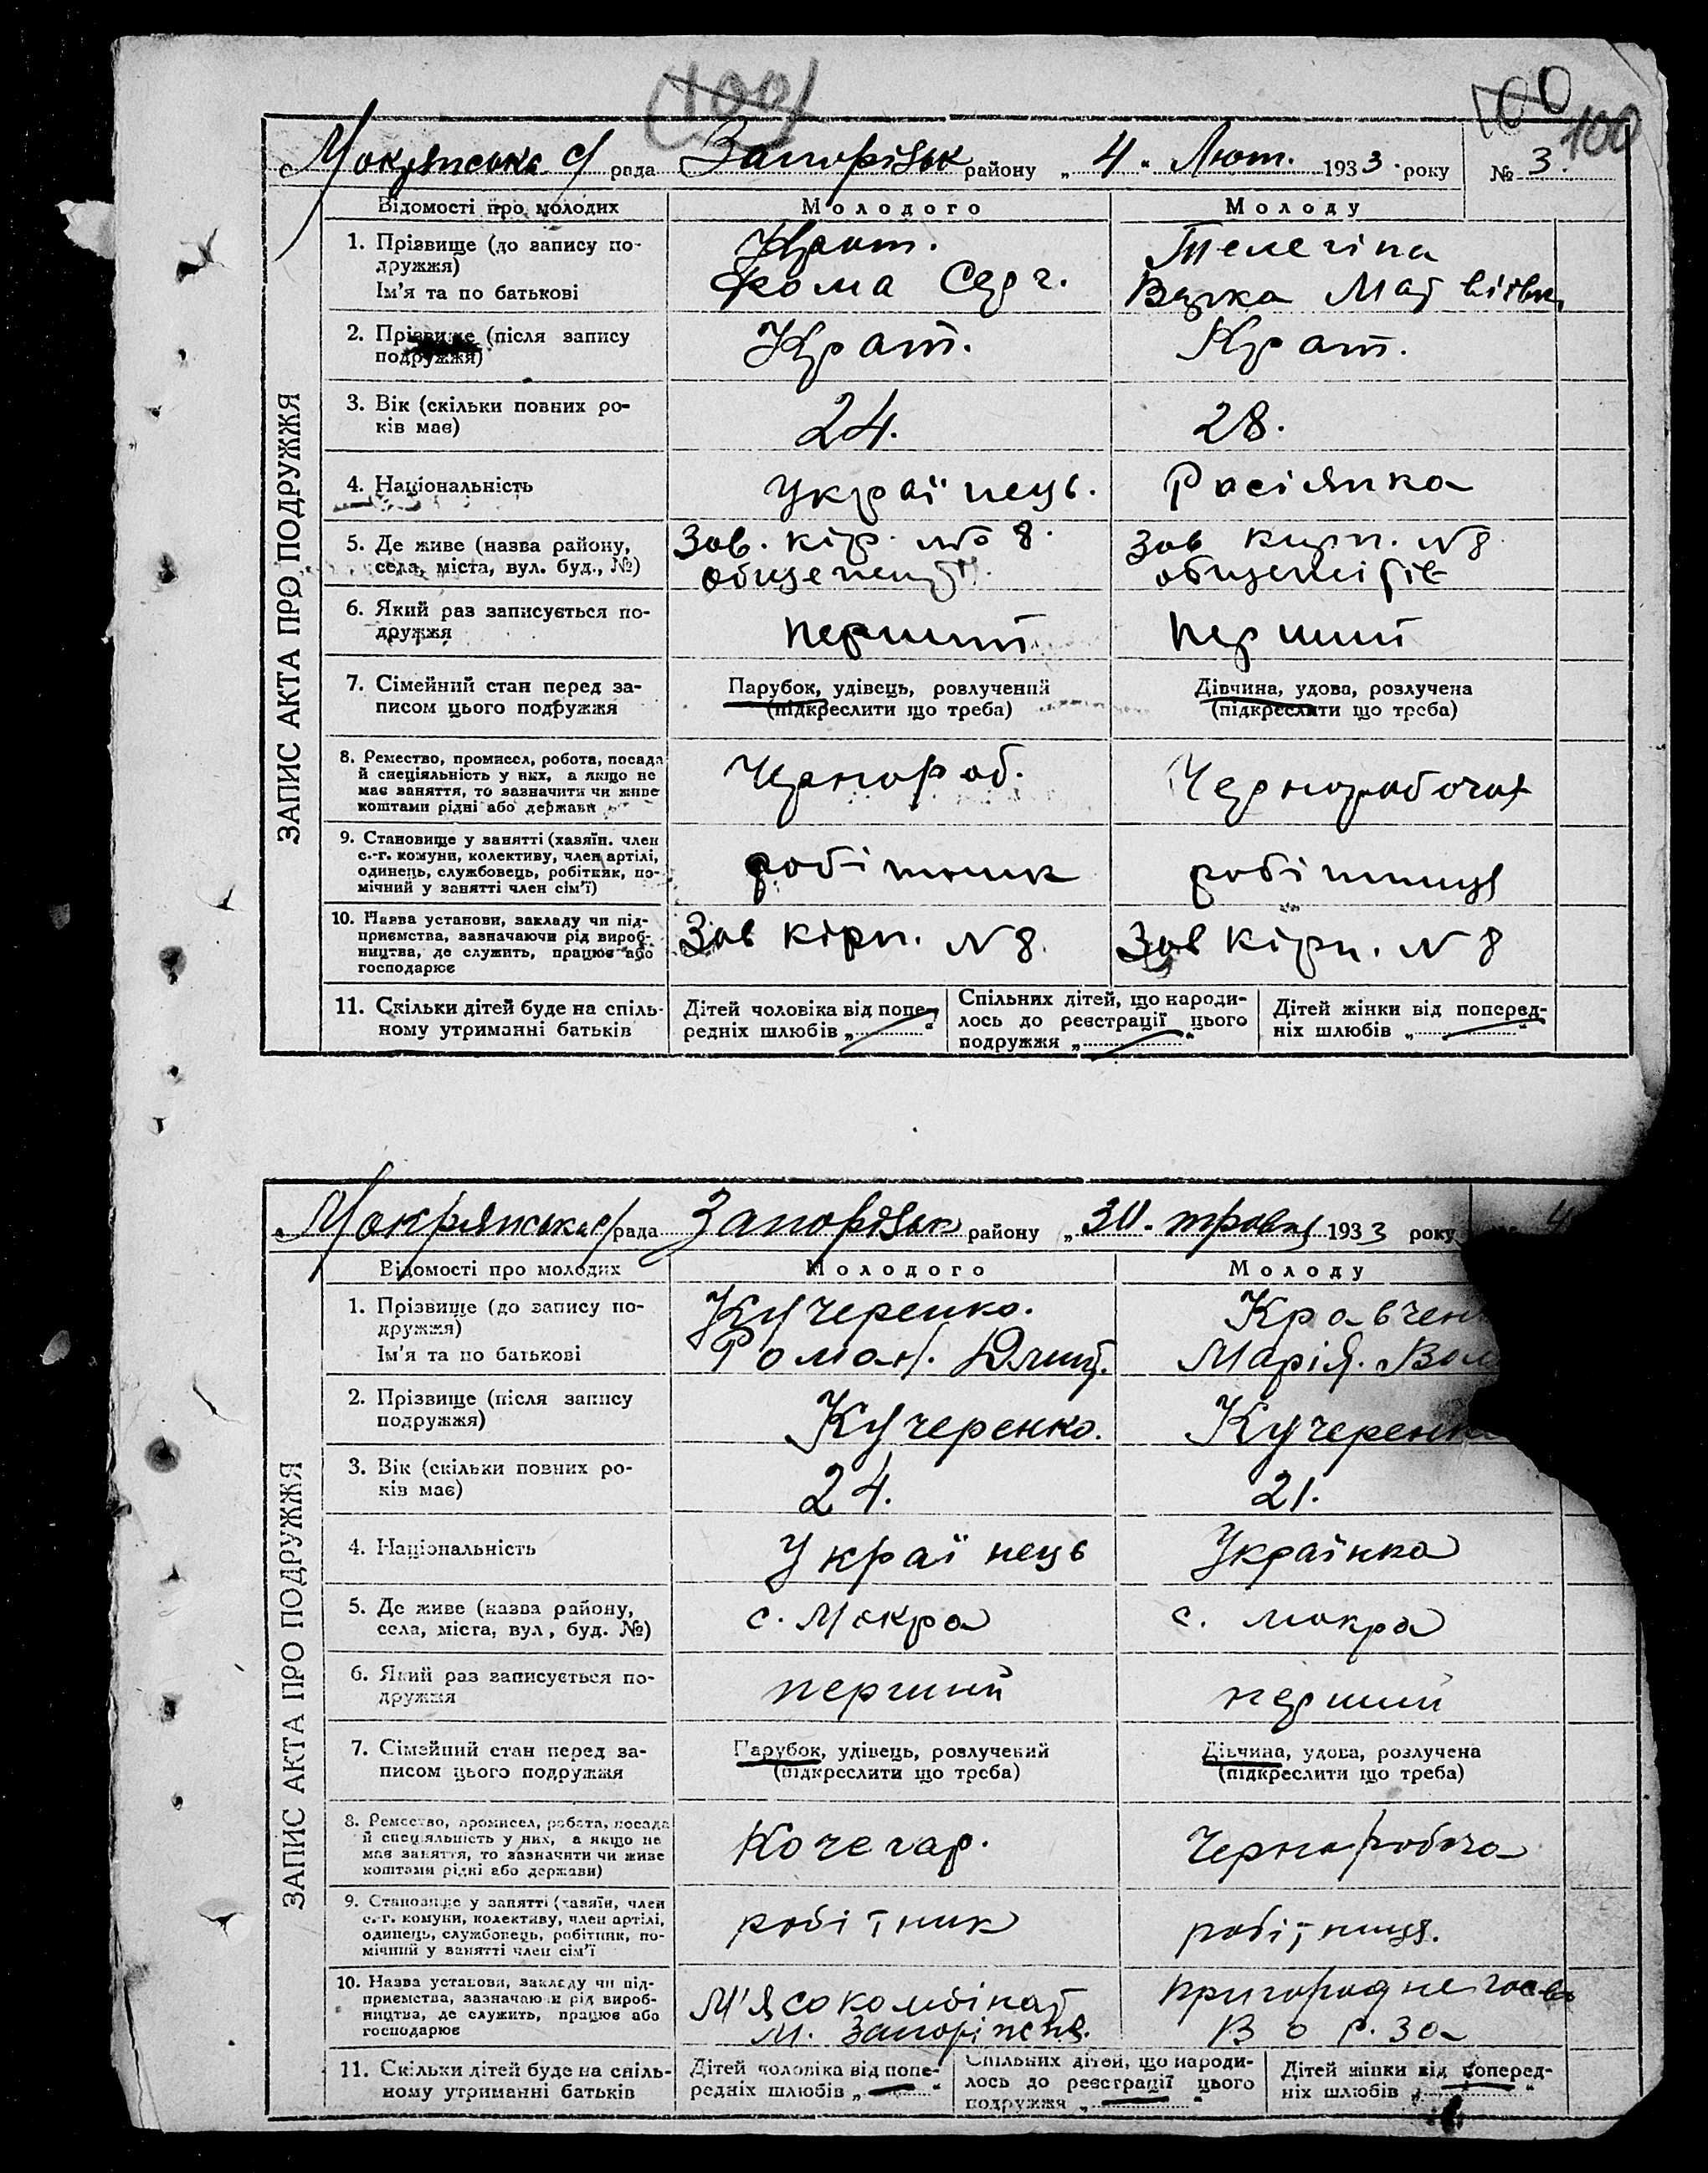 (100)
100
100
Мокрянська с/ рада Запорізьк району „4“ Лют. 1933 року № 3.
ЗАПИС АКТА ПРО ПОДРУЖЖЯ
Відомості про молодих Молодого Молоду
1. Прізвище (до запису по-
дружжя)
Ім'я та по батькові
Крат.
Фома Серг.
Телегіна
Матвіївн
2. Прізвище (після запису
подружжя)
Крат.
Крат.
3. Вік (скільки повних ро-
ків має)
24.
28.
4. Національність
Українець.
Росіянка
5. Де живе (назва району,
села, міста, вул. буд., №)
Зав. кір. № 8.
Зав кирп. N8
6. Який раз записується по-
дружжя
перший
перший
7. Сімейний стан перед за-
писом цього подружжя
Парубок, удівець, розлучений
(підкреслити що треба)
Дівчина, удова, розлучена
(підкреслити що треба)
8. Ремество, промисел, робота, посада
й спеціяльність у них, а якщо не
має заняття, то зазначити чи живе
коштами рідні або держави
Чернороб.
Чернорабочая
9. Становище у занятті (хазяїн. член
с.-г. комуни, колективу, член артілі,
одинець, службовець, робітник, по-
мічний у занятті член сім'ї)
робітник
робітниця
10. Назва установи, закладу чи під-
приємства, зазначаючи рід вироб-
ництва, де служить, працює або
господарює
Зав кірп. N 8.
Зав кірп. N 8
11. Скільки дітей буде на спіль-
ному утриманні батьків
Дітей чоловіка від попе-
редніх шлюбів „ “
Спільних дітей, що народи-
лось до реєстрації цього
подружжя „ “
Дітей жінки від поперед-
ніх шлюбів „ “
Мокрянська с/ рада Запорізьк району „30“ травня 1933 року 4
ЗАПИС АКТА ПРО ПОДРУЖЖЯ
Відомості про молодих Молодого Молоду
1. Прізвище (до запису по-
дружжя)
Ім'я та по батькові
Кучеренко.
Роман. Дмит.
Кравчен
Марія. Вол
2. Прізвище (після запису
подружжя)
Кучеренко.
Кучеренко
3. Вік (скільки повних ро-
ків має)
24.
21.
4. Національність
Українець
Українка
5. Де живе (назва району,
села, міста, вул, буд. №)
с. Мокра
с. мокра
6. Який раз записується по-
дружжя
перший
перший
7. Сімейний стан перед за-
писом цього подружжя
Парубок, удівець, розлучений
(підкреслити що треба)
Дівчина, удова, розлучена
(підкреслити що треба)
8. Ремество, промисел, робота, посада
й спеціяльність у них, а якщо не
має заняття, то зазначити чи живе
коштами рідні або держави)
Кочегар.
Черноробоча
9. Становище у занятті (хазяїн, член
с.-г. комуни, колективу, член артілі,
одинець, службовець, робітник, по-
мічний у занятті член сім'ї
робітник
робітниця.
10. Назва установи, закладу чи під-
приємства, зазначаючи рід вироб-
ництва, де служить, працює або
господарює
М'ясокомбінат
м. Запоріжжя.
пригородне
11. Скільки дітей буде на спіль-
ному утриманні батьків
Дітей чоловіка від попе-
редніх шлюбів „ “
Спільних дітей, що народи-
лось до реєстрації цього
подружжя „ “
Дітей жінки від поперед-
ніх шлюбів „ “